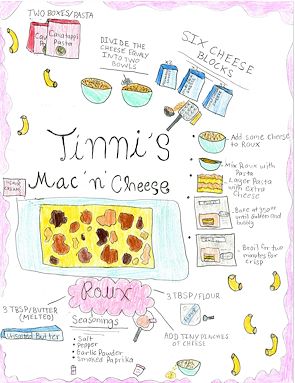 TWO BOXES/PASTA
Cavatappi
Pasta
DIVIDE THE
CHEESE EQUALY
INTO TWO
BOWLS
SIX CHEESE
BLOCKS
Tinni's
Mac 'n' Cheese
Add some cheese
to Roux
Mix Roux with
Pasta
Layer Pasta
with extra
Cheese
Bake at 350°F
until golden and
bubbly
Broil for two
minutes for
crisp
HEAVY
CREAM
Roux
3 TBSP/BUTTER
(MELTED)
Unsalted Butter
Seasonings
• Salt
• Pepper
• Garlic Powder
• Smoked Paprika
3 TBSP/FLOUR
ADD TINY PINCHES
OF CHEESE